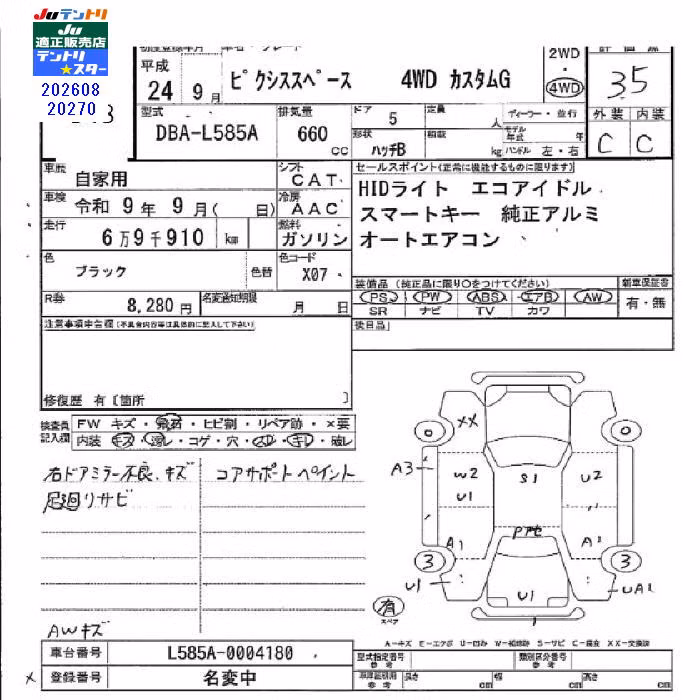 Juテントリ
Ju
適正販売店
テントリ
★スター
202608
20270
初度登録年月
車名・グレード
平成
24 9月
ピクシススペース 4WD カスタムG
2WD
・
4WD
評価点
3.5
外装 内装
C C
型式
DBA-L585A
排気量
660
cc
ドア 5
定員 人
形状 ハッチB
積載 kg
ディーラー・並行
モデル年式 年
ハンドル 左・右
車歴 自家用
シフト CAT
車検 令和 9年 9月( 日)
冷房 AAC
走行 6万9千910 km
燃料 ガソリン
色 ブラック
色替
色コード X07
R券 8,280円
名変通知期限 月 日
セールスポイント(正常に機能するものに限ります)
HIDライト エコアイドル
スマートキー 純正アルミ
オートエアコン
装備品(純正品に限り○をつけてください)
PS PW ABS エアB AW
SR ナビ TV カワ
新車保証書
有・無
後日品
注意事項申告欄(不具合内容等は具体的に記入して下さい)
修復歴 有〔箇所 〕
検査員記入欄
FW キズ・飛石・ヒビ割・リペア跡・×要
内装 キズ・汚レ・コゲ・穴・スレ・キレ・破レ
右ドアミラー不良、キズ
足廻リサビ
コアサポートペイント
AWキズ
XX
0 0
A3
W2
U1
S1
U2
Pアセ
A1 A1
3 3
U1
U1
UA1
有
スペア
A-キズ E-エクボ U-凹み W-補修跡 S-サビ C-腐食 XX-交換済
車台番号 L585A-0004180
登録番号 名変中
型式指定番号 参考
類別区分番号 参考
車庫証明用 参考
長さ cm
幅 cm
高さ cm